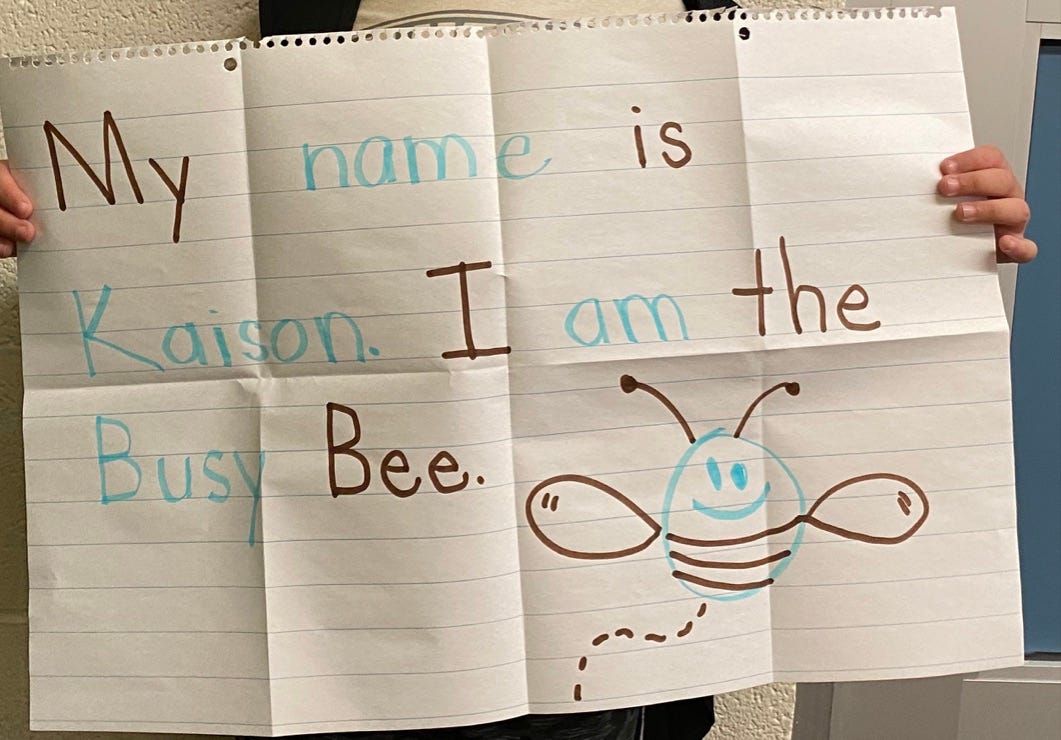 My name is
Kaison. I am the
Busy Bee.